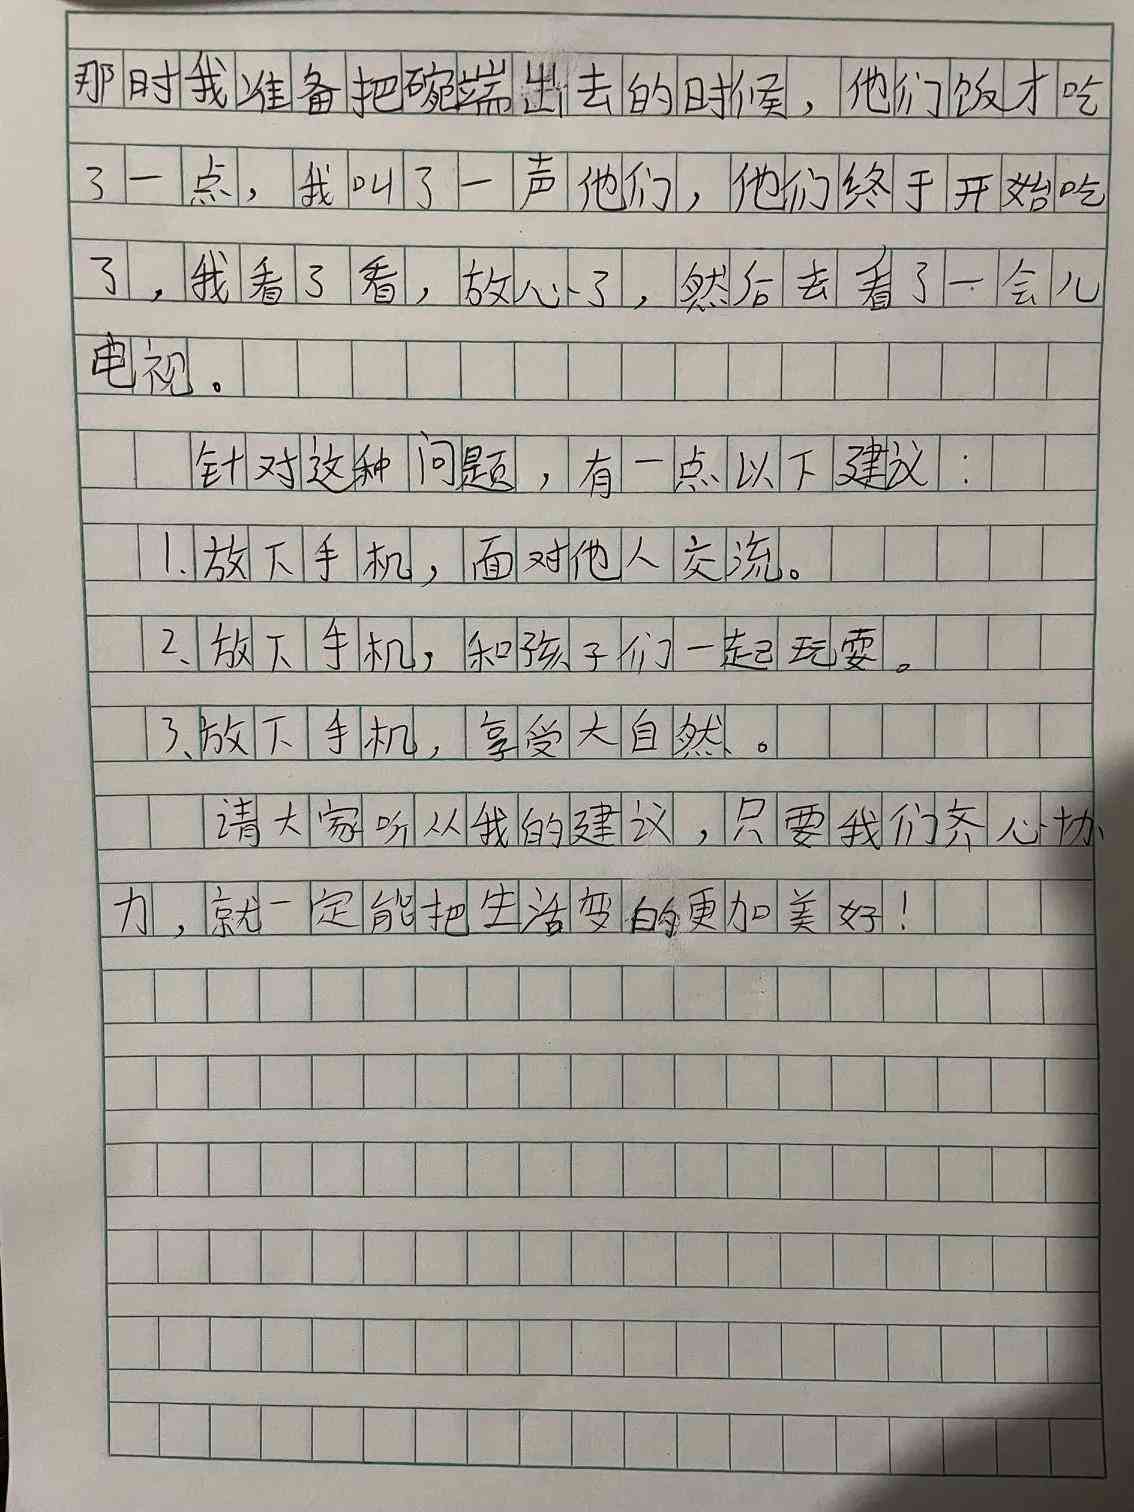 那时我准备把碗端出去的时候，他们饭才吃
了一点，我叫了一声他们，他们终于开始吃
了，我看了看，放心了，然后去看了一会儿
电视。
针对这种问题，有一点以下建议：
1.放下手机，面对他人交流。
2、放下手机，和孩子们一起玩耍。
3、放下手机，享受大自然。
请大家听从我的建议，只要我们齐心协
力，就一定能把生活变的更加美好！